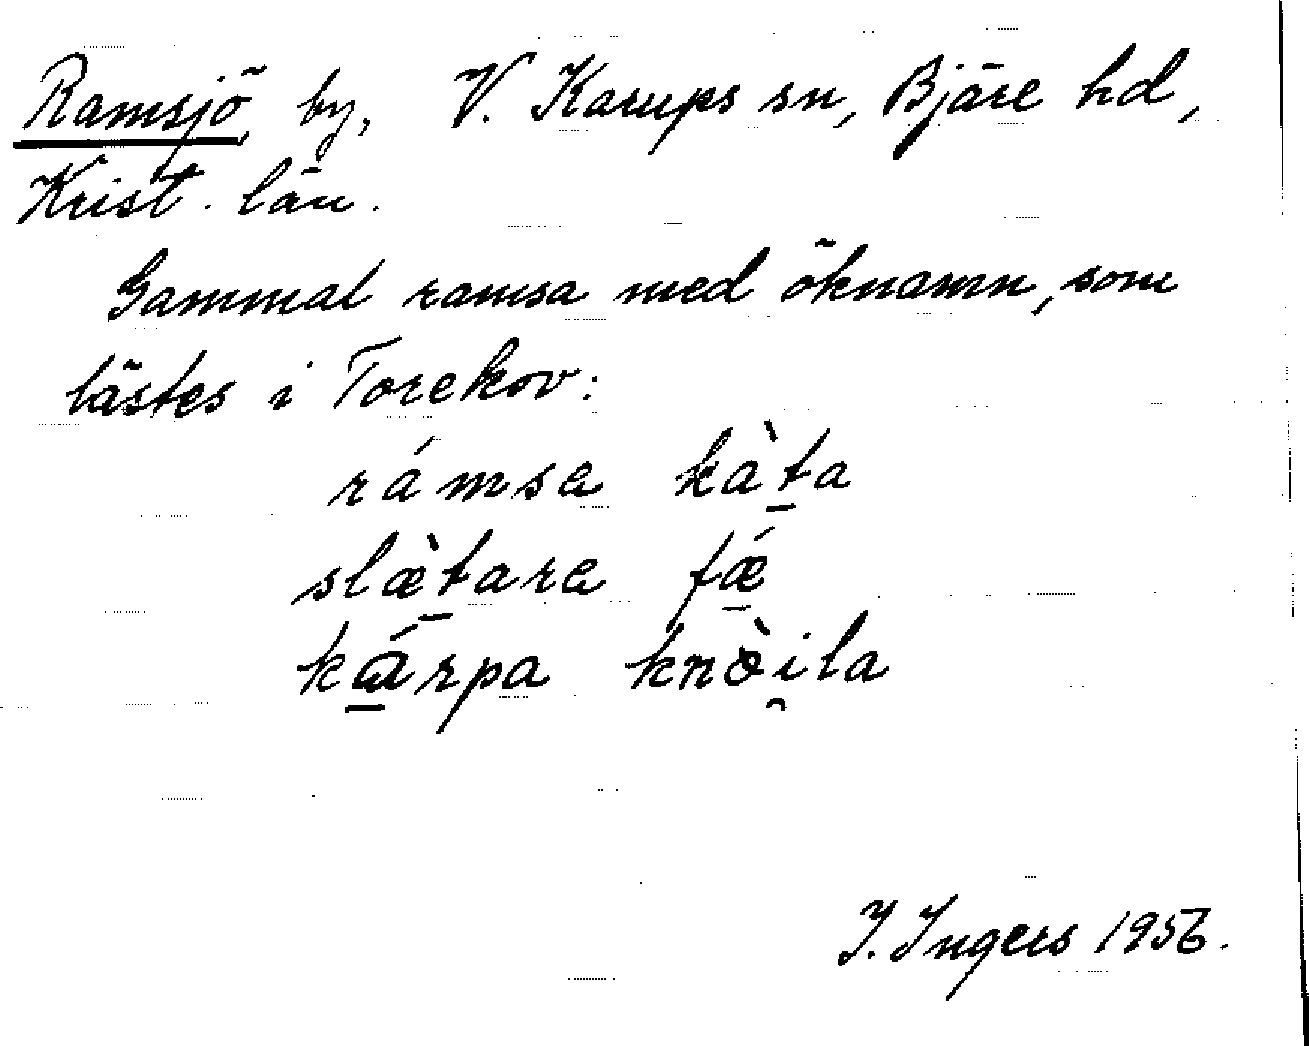 Ramsjö, by, V. Karups sn, Bjäre hd,
Krist. län.
Gammal ramsa med öknamn, som
lästes i Torekov:
rámsa kàt̲a
slæ̀t̲ara fǽ̲
ká̲rpa knòi̯la
I. Ingers 1956.